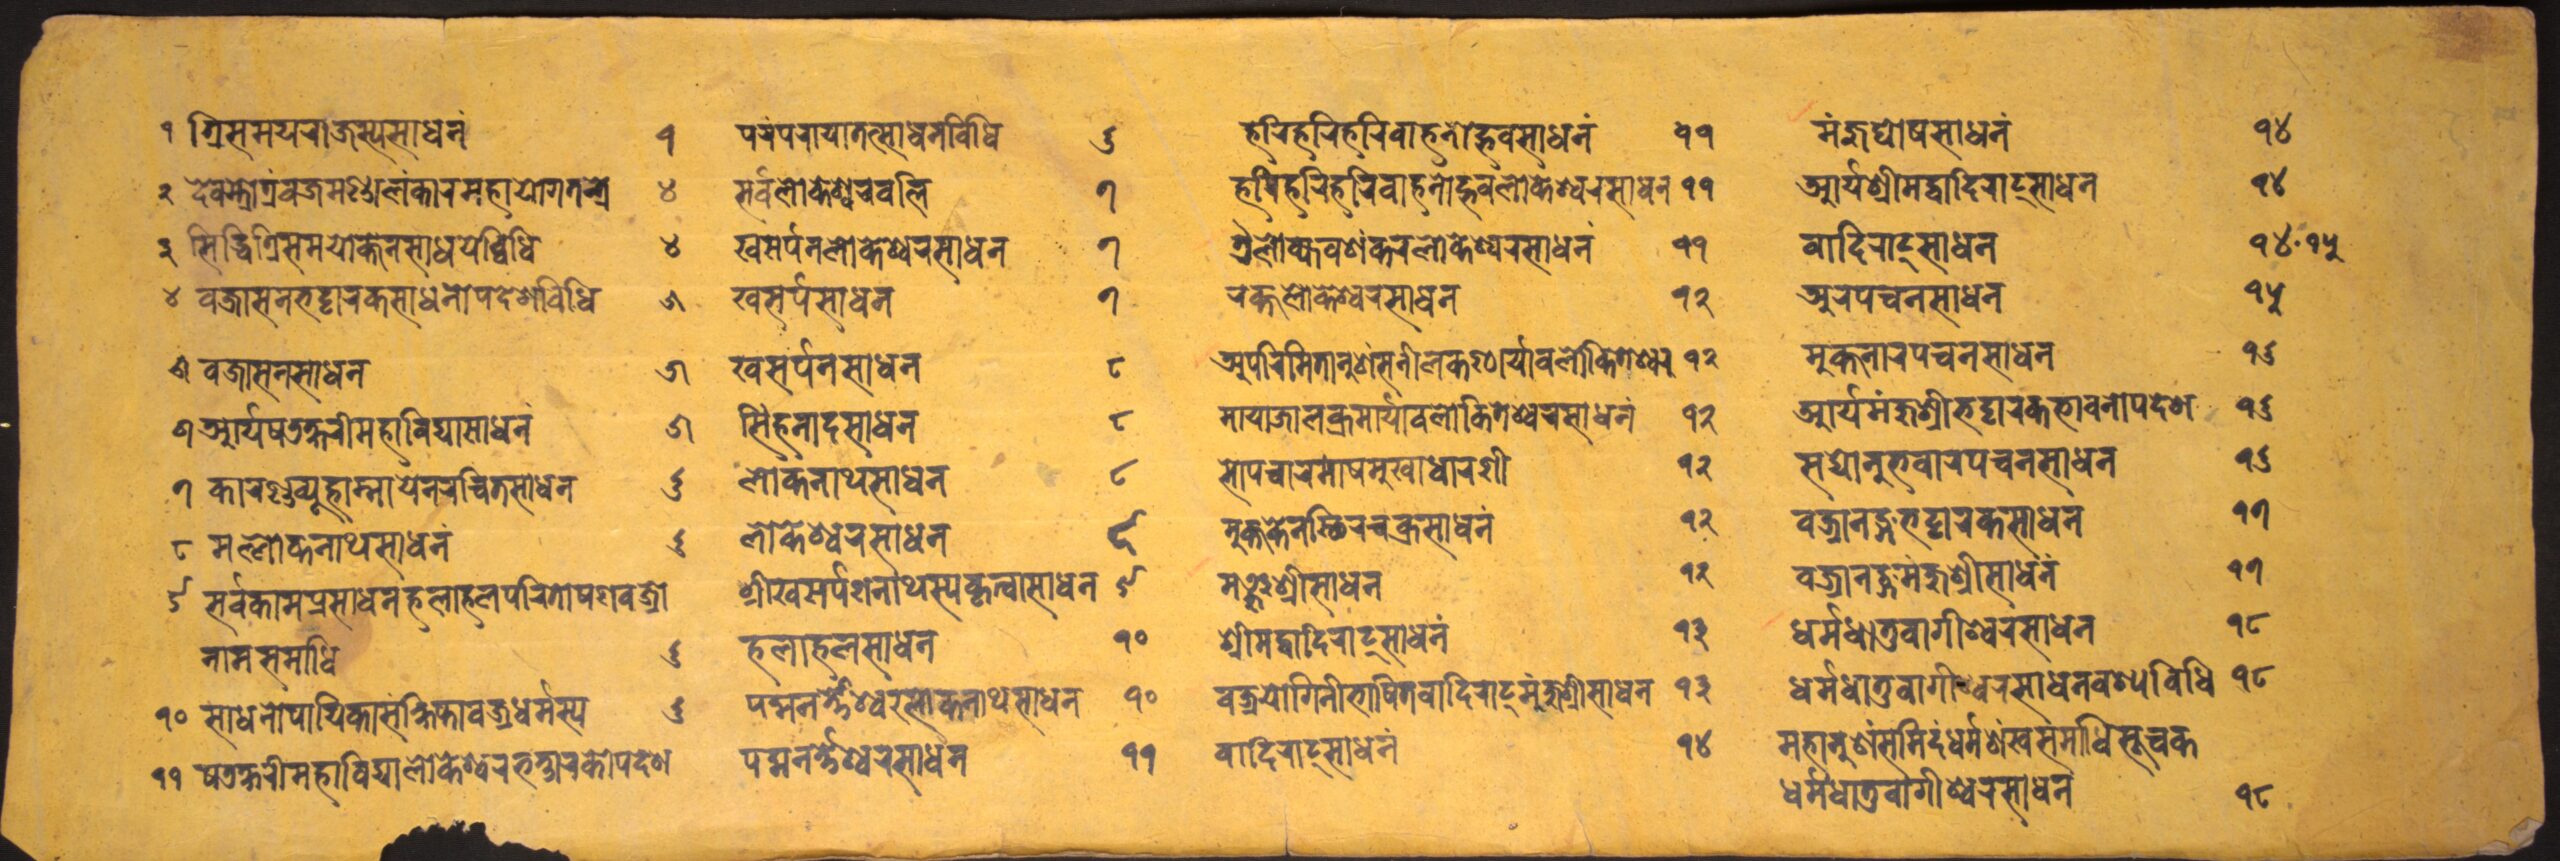 १ त्रिसमयराजस्यसाधनं १
२ देवस्तोत्रंवज्रमण्डालंकारमहायोगतन्त्रे ४
३ सिद्धित्रिसमयोक्तेनसाधयेद्विधि ४
४ वज्रासनभट्टारकसाधनोपदेशविधि ५
५ वज्रासनसाधन ५
६ आर्यषडक्षरीमहाविद्यासाधनं ५
७ कारण्डव्यूहाम्नायेनरचितसाधन ६
८ मल्लोकनाथसाधनं ६
९ सर्वकामप्रसाधनहलाहलपरितोषणवज्रो
नामसमाधि ६
१० साधनोपायिकासंक्षिप्तावज्रधर्मस्य ६
११ षडक्षरीमहाविद्यालोकेश्वरभट्टारकोपदेश
परंपरायातत्साधनविधि ६
सर्वलोकेश्वरवलि ७
खसर्पनलोकेश्वरसाधन ७
खसर्पसाधन ७
खसर्पनसाधन ८
सिंहनादसाधन ८
लोकनाथसाधन ८
लोकेश्वरसाधन ९
श्रीखसर्पणनाथस्यकृत्वासाधन ९
हलाहलसाधन १०
पद्मनर्त्तेश्वरलोकनाथसाधन १०
पद्मनर्त्तेश्वरसाधन ११
हरिहरिहरिवाहनोद्भवसाधनं ११
हरिहरिहरिवाहनोद्भवलोकेश्वरसाधन ११
त्रैलोक्यवशंकरलोकेश्वरसाधनं ११
रक्तलोकेश्वरसाधन १२
अपरिमितानुशंसनीलकण्ठार्यावलोकितेश्वर १२
मायाजालक्रमार्यावलोकितेश्वरसाधनं १२
सोपचारमाषमुखाधारणी १२
मुक्तकेनस्थिरचक्रसाधनं १२
मञ्जुश्रीसाधन १२
श्रीमद्वादिराट्साधनं १३
वज्रयोगिनीभाषितवादिराट्मंजुश्रीसाधन १३
वादिराट्साधनं १४
मंजुघोषसाधनं १४
आर्यश्रीमद्वादिराट्साधन १४
वादिराट्साधन १४·१५
अरपचनसाधन १५
मुक्तनारपचनसाधन १६
आर्यमंजुश्रीभट्टारकभावनोपदेश १६
सद्योनुभवारपचनसाधन १६
वज्रानङ्गभट्टारकसाधन १७
वज्रानङ्गमंजुश्रीसाधनं १७
धर्मधातुवागीश्वरसाधन १८
धर्मधातुवागीश्वरसाधनवश्यविधि १८
महानुशंसमिदंधर्मशंखसमाधिसूचक
धर्मधातुवागीश्वरसाधन १८